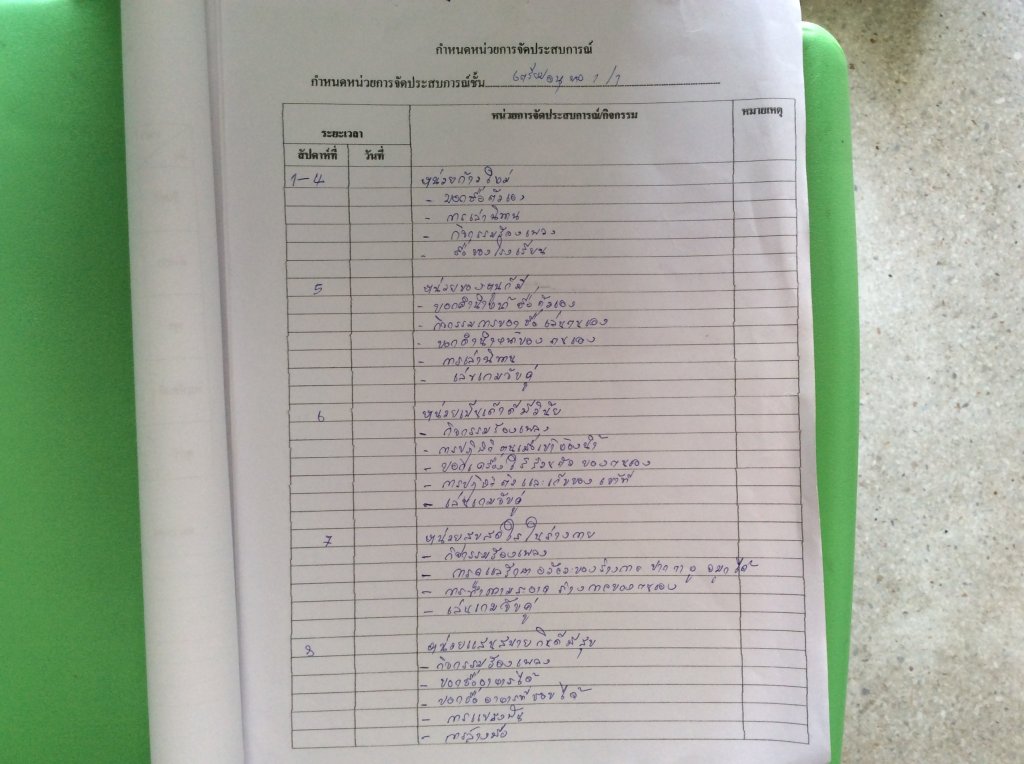 กำหนดหน่วยการจัดประสบการณ์
กำหนดหน่วยการจัดประสบการณ์ชั้น เตรียมอนุบาล 1/1
ระยะเวลา หน่วยการจัดประสบการณ์/กิจกรรม หมายเหตุ
สัปดาห์ที่ วันที่
1-4 หน่วยก้าวใหม่
- บอกชื่อตัวเอง
- การเล่านิทาน
- กิจกรรมร้องเพลง
- ชื่อของโรงเรียน
5 หน่วยของหนูก็มี
- บอกคำนำหน้าชื่อตัวเอง
- กิจกรรมการบอกชื่อเล่นตนเอง
- บอกคำนำหน้าของตนเอง
- การเล่านิทาน
- เล่นเกมจับคู่
6 หน่วยเป็นเด็กดีมีวินัย
- กิจกรรมร้องเพลง
- การปฏิบัติตนเมื่อเข้าห้องน้ำ
- บอกเครื่องใช้ส่วนตัวของตนเอง
- การปฏิบัติตนและเก็บของเข้าที่
- เล่นเกมจับคู่
7 หน่วยสดใสในร่างกาย
- กิจกรรมร้องเพลง
- การดูแลรักษาอวัยวะของร่างกาย ปาก ตา หู จมูกได้
- การทำความสะอาดร่างกายของตนเอง
- เล่นเกมจับคู่
8 หน่วยแสนสบายกินดีมีสุข
- กิจกรรมร้องเพลง
- บอกชื่ออาหารได้
- บอกชื่ออาหารที่ชอบได้
- การแปรงฟัน
- การล้างมือ